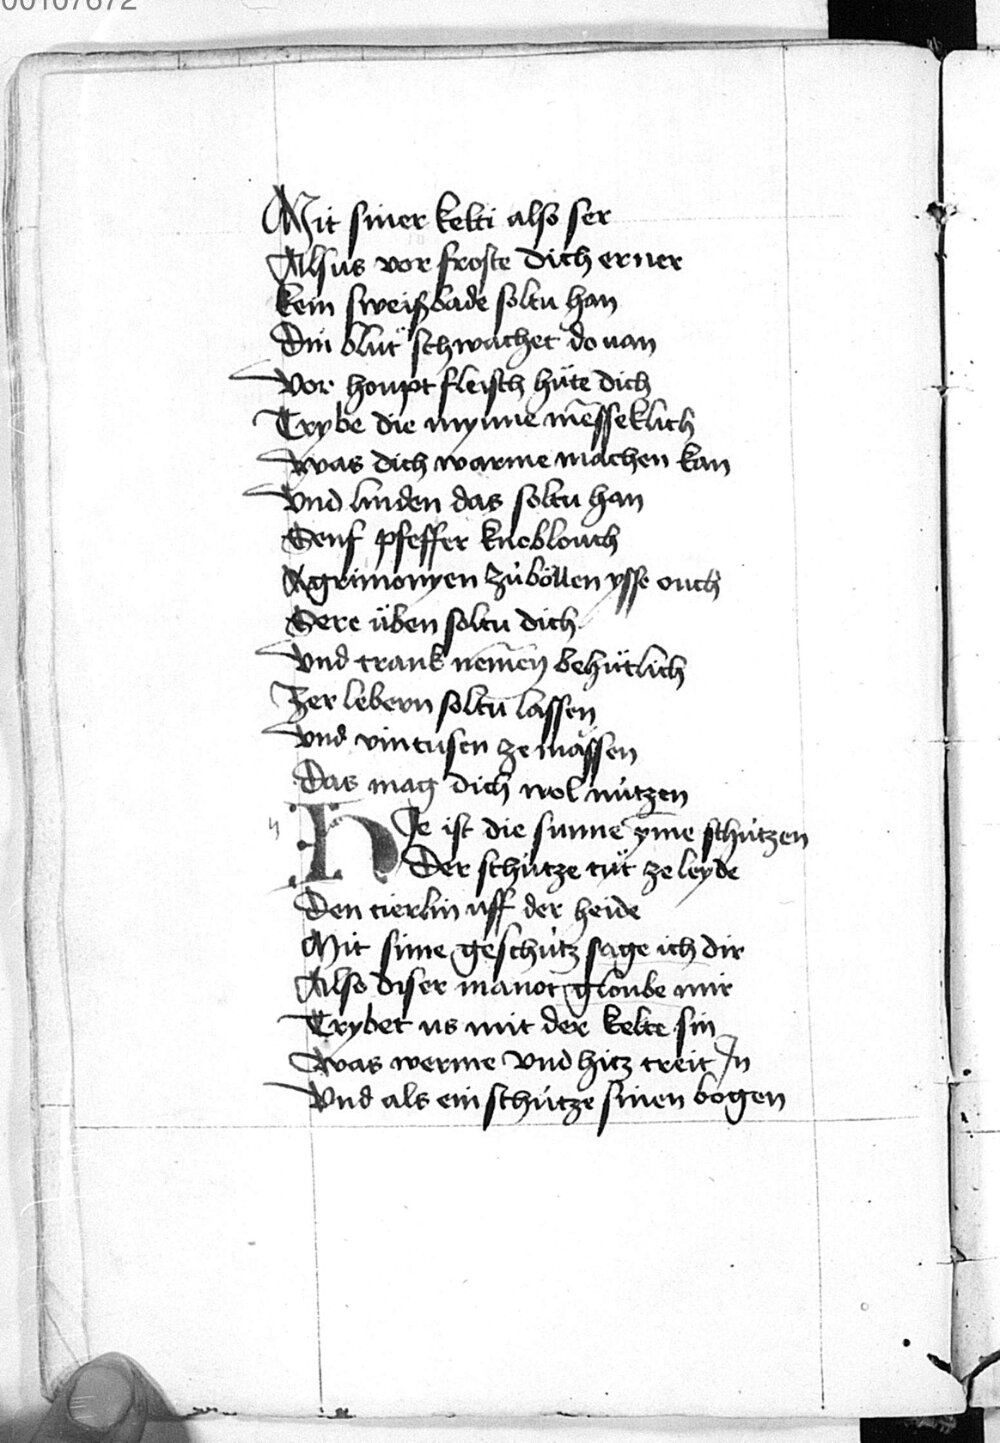 00107672
Mit siner kelti also ser
Alsus vor froste dich erner
kein sweißbade soltu han
Din blůt schwachet do uon
Vor houpt fleisch hüte dich
Trybe die mynne mēsseklich
Was dich warme machen kan
Vnd linden das soltu han
Senf pfeffer knoblouch
Agrimonyen zůböllen ysse ouch
Sere üben soltu dich
Vnd trank nemen behůtlich
Zer lebern soltu lassen
Vnd vintusen ze mässen
Das mag dich wol nützen
h HIe ist die sunne yme schützen
Der schütze tůt ze leyde
Den tierlin uff der heide
Mit sime geschütz sage ich dir
Also diser manot gloube mir
Trybet us mit der kelte sin
Was werme vnd hitz treit In
Vnd als ein schütze sinen bogen